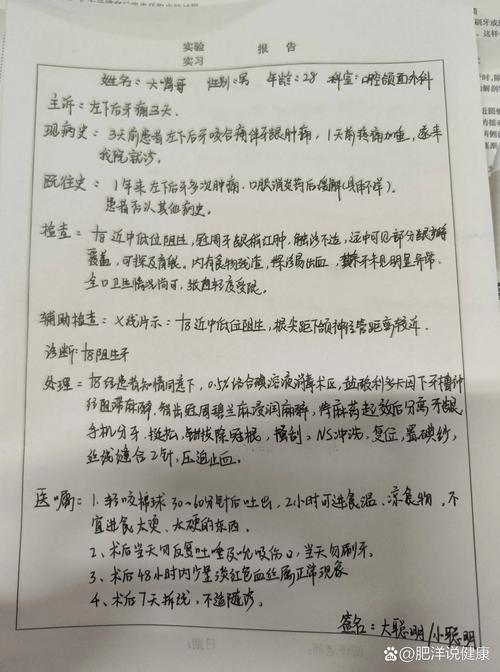 实验
实习 报告
姓名：大嘴哥 性别：男 年龄：28 科室：口腔颌面外科
主诉：左下后牙痛3天.
现病史：3天前患者左下后牙咬合痛伴牙龈肿痛，1天前疼痛加重，遂来
我院就诊。
既往史：1年来左下后牙多次肿痛，口服消炎药后缓解(具体不详)。
患者否认其他病史。
检查：近中低位阻生，冠周牙龈稍红肿，触诊不适，远中可见部分龈瓣
覆盖，可探及盲袋。内有食物残渣，探诊易出血，牙未见明显异常.
全口卫生情况尚可，张口轻度受限。
辅助检查：X线片示：近中低位阻生，根尖距下颌神经管距离较近.
诊断：阻生牙
处理：经患者知情同意下，0.5%络合碘溶液消毒术区，盐酸利多卡因下牙槽神
经阻滞麻醉，冠周碧兰麻浸润麻醉，待麻药起效后分离牙龈.
手机分牙，挺松，钳拔除冠根，搔刮，NS冲洗，复位，置碘纱，
丝线缝合2针，压迫止血。
医嘱：1.轻咬棉球30~60分钟后吐出，2小时可进食温、凉食物，不
宜进食太烫、太硬的东西.
2、术后当天勿反复吐唾及吮吸伤口，当天勿刷牙。
3、术后48小时内少量淡红色血丝属正常现象
4、术后7天拆线，不适随诊。
签名：大聪明/小聪明
日期：
@肥洋说健康